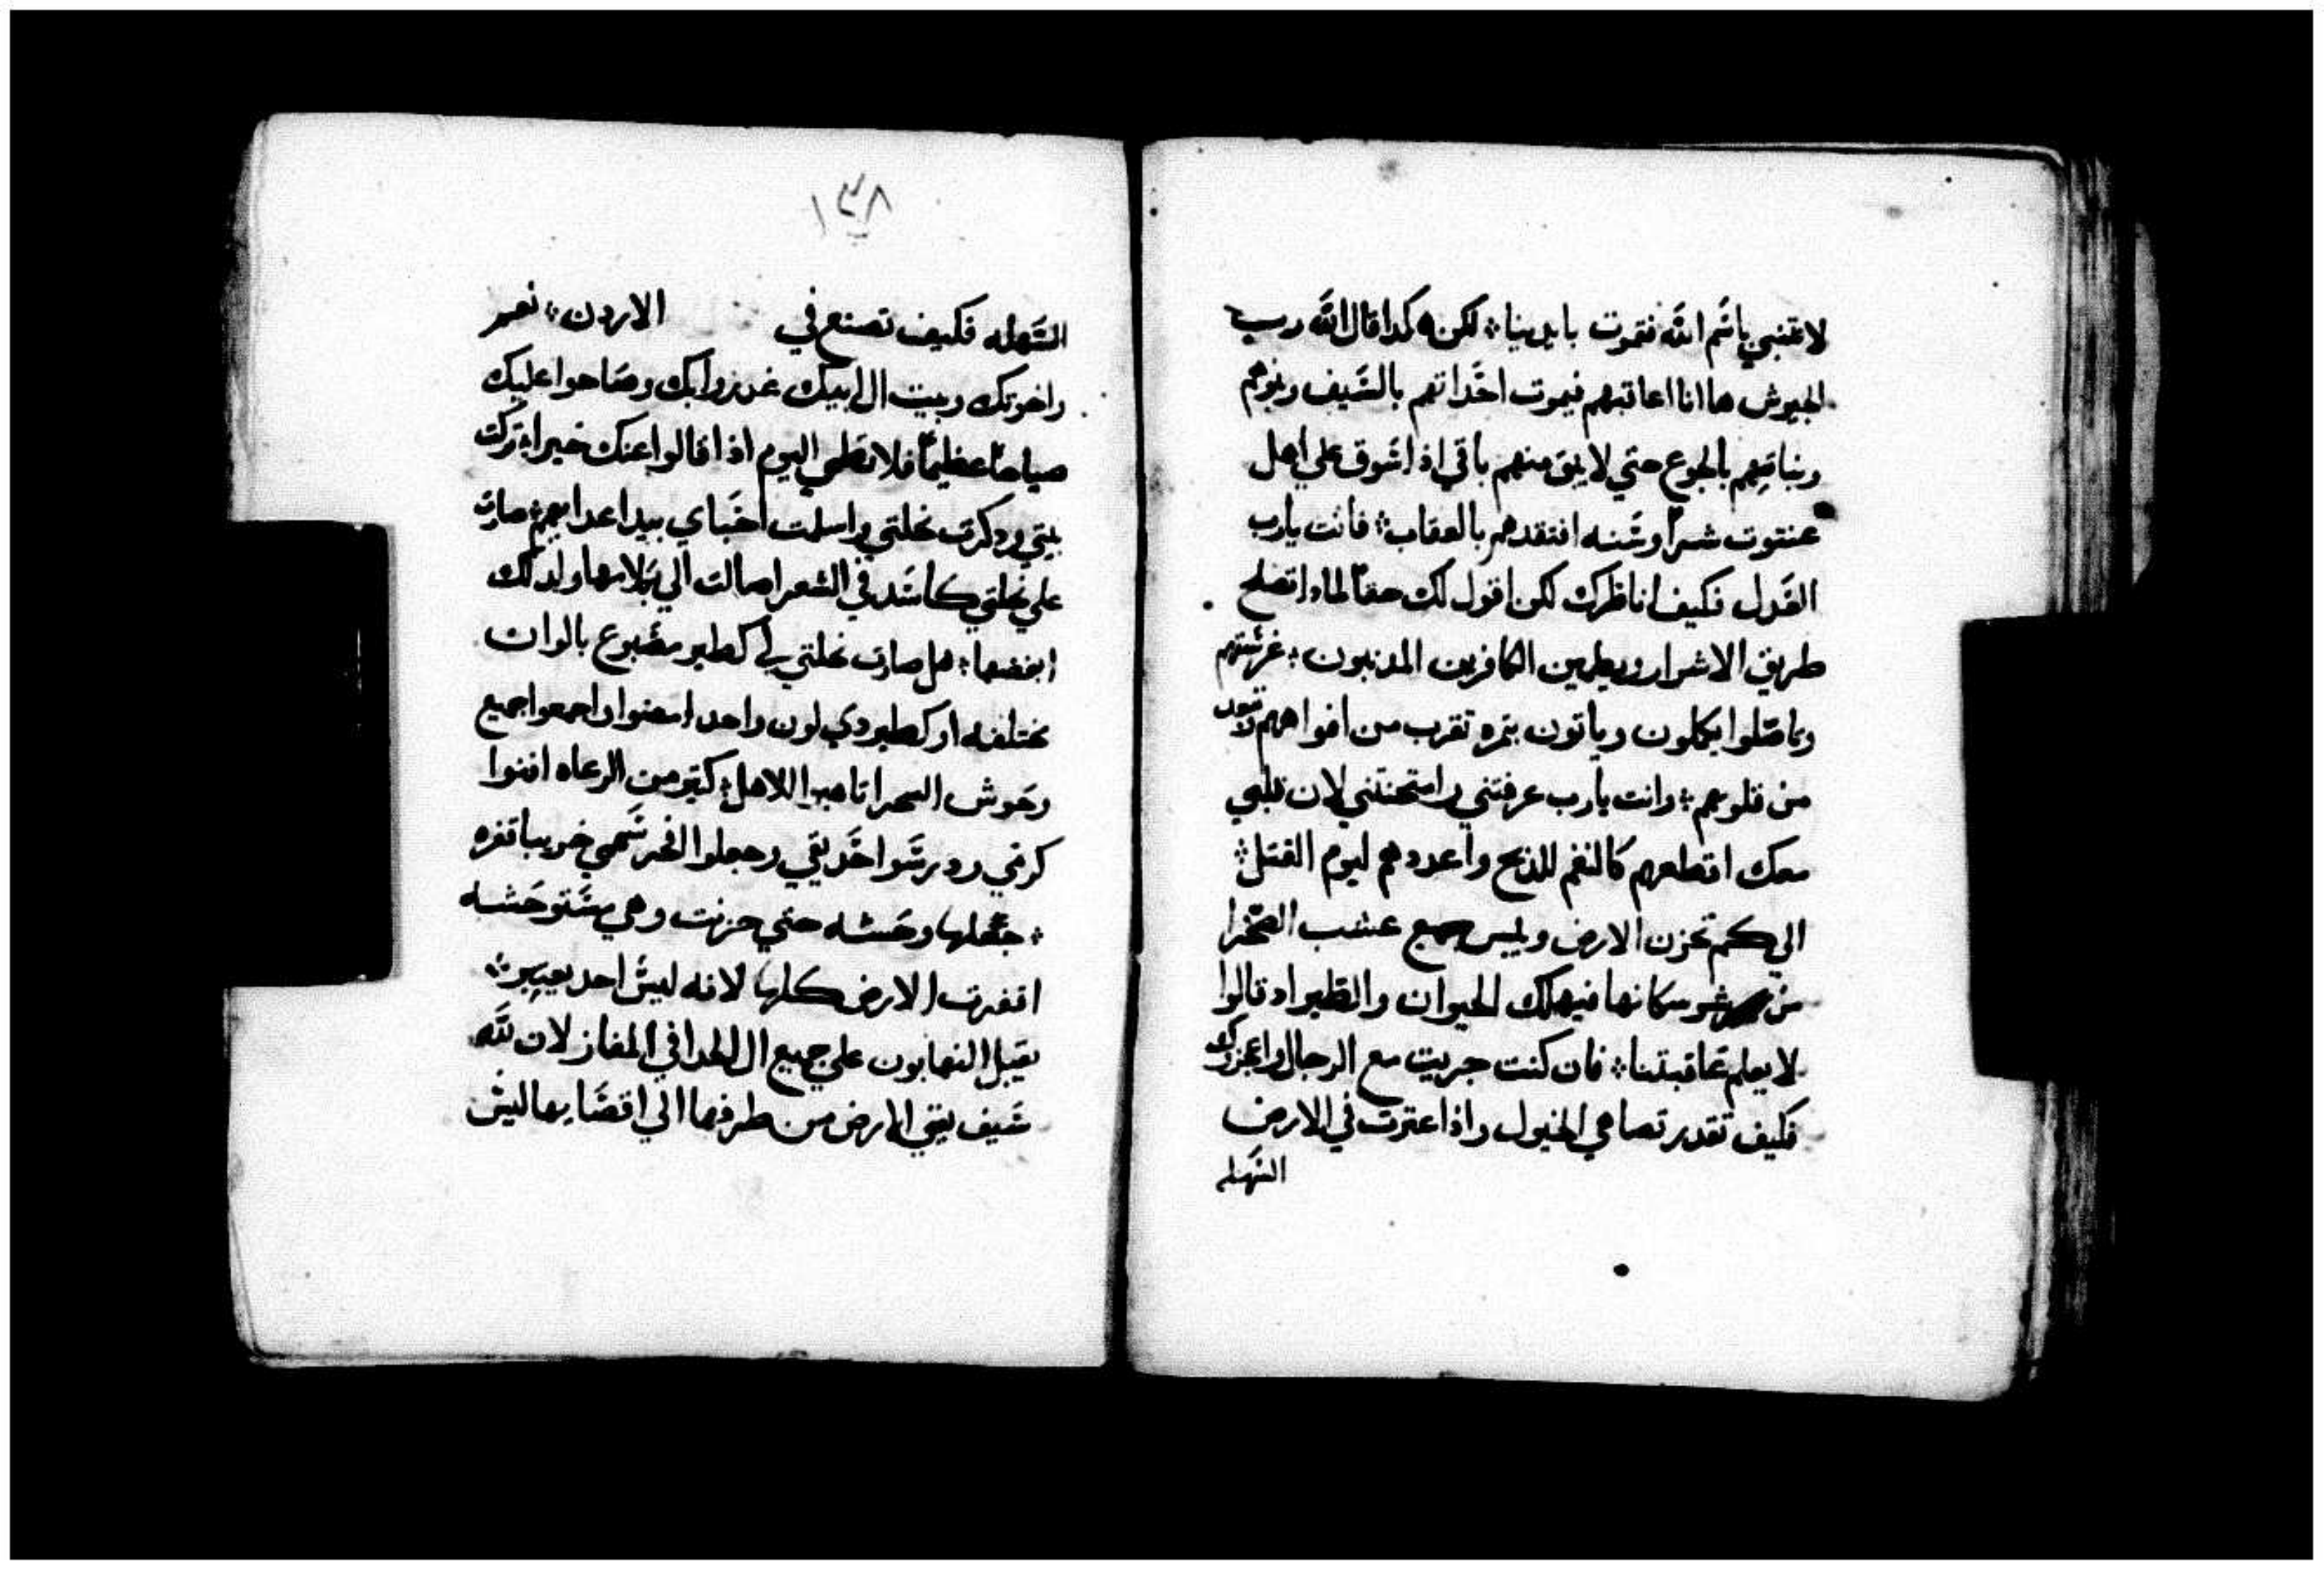 لا تتنبي باسم الله فتموت بايدينا لكن هكدا قال الله رب
الجيوش ها انا اعاقبهم فيموت احداثهم بالسيف وبنوهم
وبناتهم بالجوع حتي لا يبق منهم باقي اذ اسوق علي اهل
عنتوت شرا وسنه افتقدهم بالعقاب فانت يارب
العدل فكيف اناظرك لكن اقول لك حقا لمادا تصلح
طريق الاشرار ويطمين الكافرين المدنبون غرستهم
وتاصلوا يكملون وياتون بتمره تقرب من افواههم وتبعد
من قلوبهم وانت يارب عرفتني وامتحنتني لان قلبي
معك اقطعهم كالغنم للدبح واعددهم ليوم القتل
الي كم تحزن الارض وييبس جميع عشب الصحرا
من سكانها فيهلك الحيوان والطير اد قالوا
لا يعلم عاقبتنا فان كنت جريت مع الرجال واعجزوك
فكيف تقدر تصاهي الخيول واذا عترت في الارض
السهله
١٣٨
السهله فكيف تصنع في الاردن نعم
واخوتك وبيت ال ابيك غدروا بك وصاحوا عليك
صياحا عظيما فلا تطمي اليوم اذا قالوا عنك خيرا تركت
بيتي ودكرت نحلتي واسلمت احباي بيد اعدايهم صارت
علي نحلتي كاسد في الشعرا امالت الي بكلامها ولدلك
ابغضها هل صارت نحلتي لي كطير مصبوع بالوان
مختلفه او كطير دي لون واحد امضوا واجمعوا جميع
وحوش الصحرا تاهبوا للاهل كتير من الرعاه افنوا
كرمي ودرسوا حديقتي وجعلوا الفخر سهمي خريبا قفره
جعلها وحشه حتي حزنت وهي مستوحشه
اقفرت الارض كلها لانه ليس احد يعيير
يقبل النهابون علي جميع ال الحدا في المفاز لان لله
سيف يفني الارض من طرفها الي اقصايها ليس